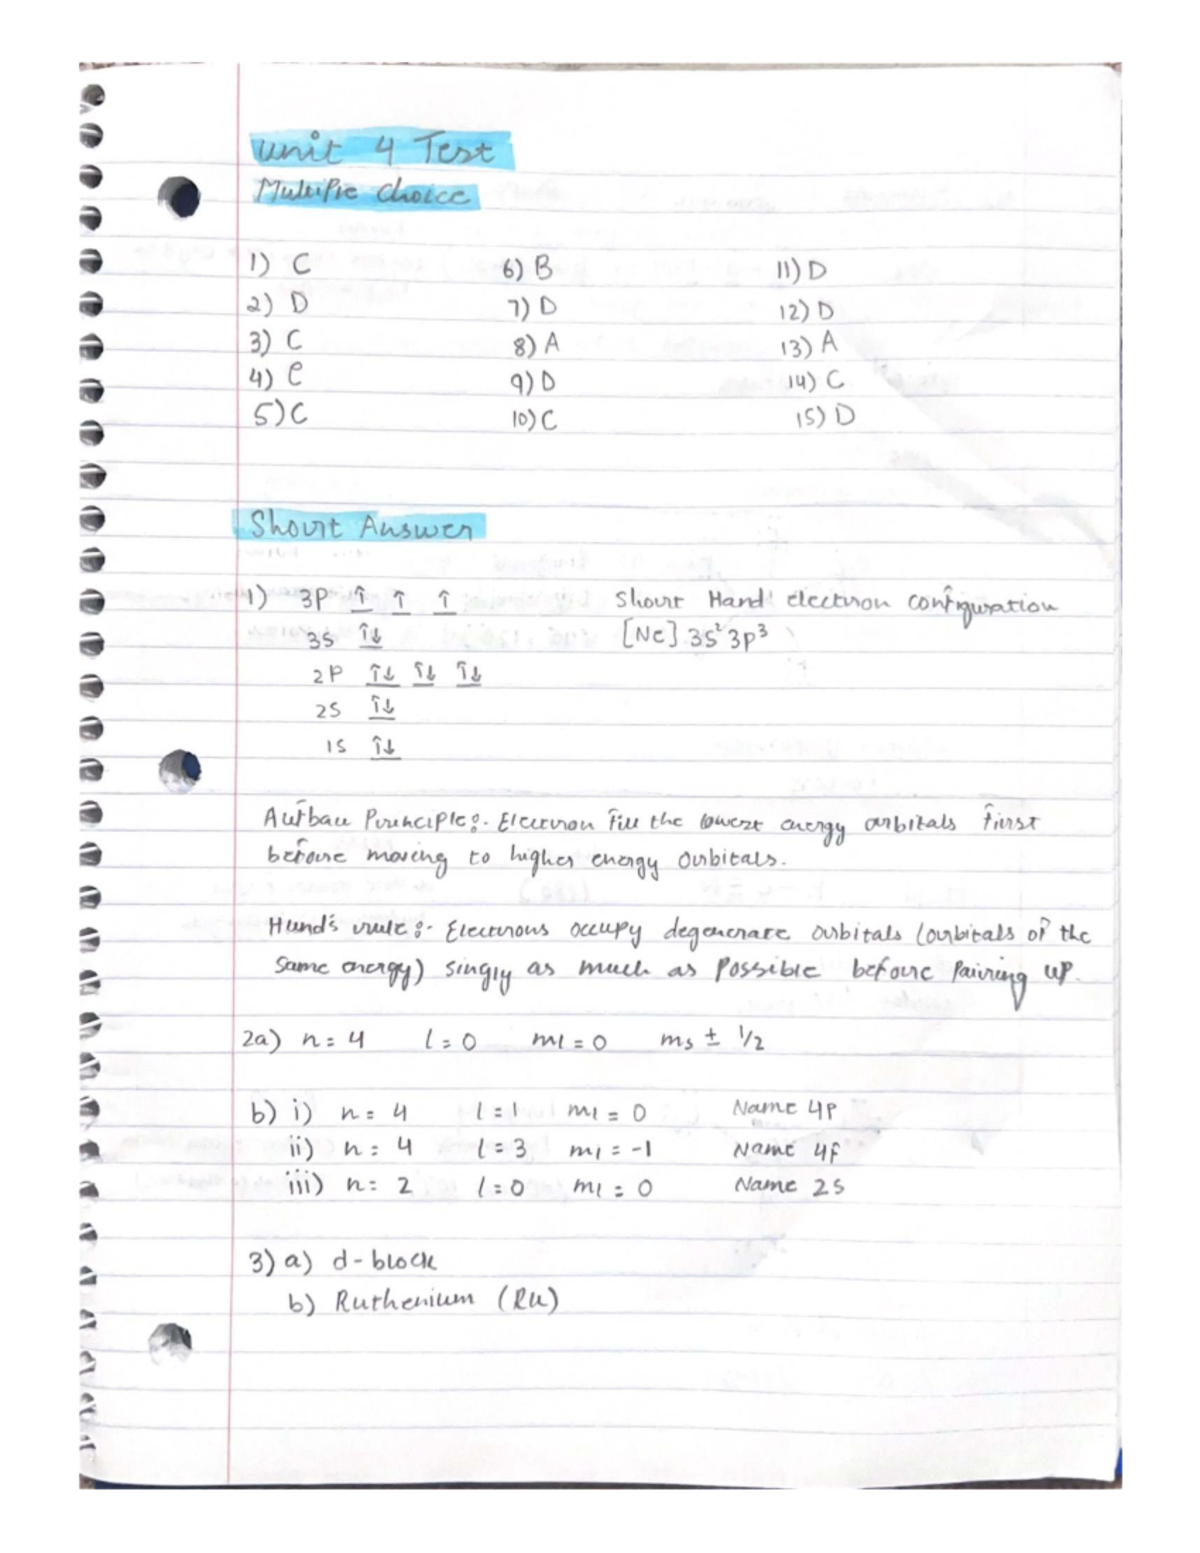 Unit 4 Test
Multiple Choice
1) C 6) B 11) D
2) D 7) D 12) D
3) C 8) A 13) A
4) C 9) D 14) C
5) C 10) C 15) D
Short Answer
1) 3P ↑ ↑ ↑ Short Hand electron configuration
3S ↑↓ [Ne] 3s² 3p³
2P ↑↓ ↑↓ ↑↓
2S ↑↓
1S ↑↓
Aufbau Principle:- Electron fill the lowest energy orbitals first
before moving to higher energy orbitals.
Hund's rule:- Electrons occupy degenerate orbitals (orbitals of the
same energy) singly as much as possible before pairing up.
2a) n = 4 l = 0 ml = 0 ms ± 1/2
b) i) n = 4 l = 1 ml = 0 Name 4P
ii) n = 4 l = 3 ml = -1 Name 4f
iii) n = 2 l = 0 ml = 0 Name 2s
3) a) d-block
b) Ruthenium (Ru)